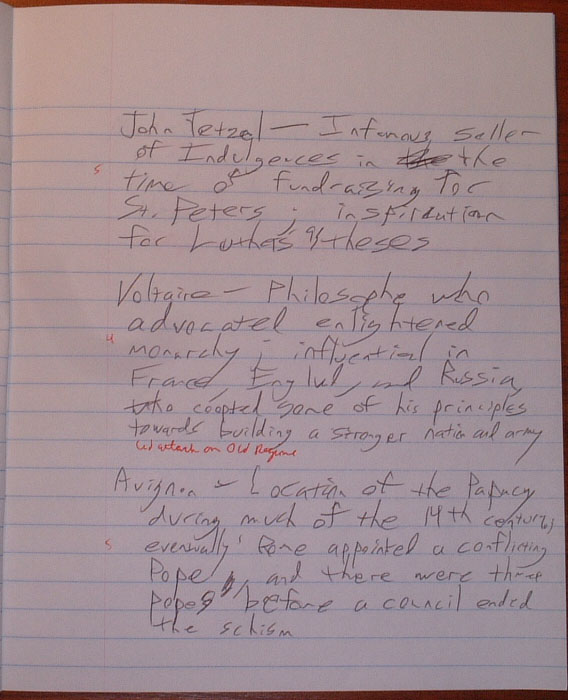 John Tetzel — Infamous seller
of Indulgences in the the
s
time of fundraising for
St. Peters ; inspiration
for Luther's 95 theses
Voltaire — Philosophe who
advocated enlightened
4
monarchy ; influential in
France, England, and Russia,
who coopted some of his principles
towards building a stronger nation and army
led attack on Old Regime
Avignon — Location of the Papacy
during much of the 14th century;
s
eventually Rome appointed a conflicting
Pope, and there were three
popes before a council ended
the schism